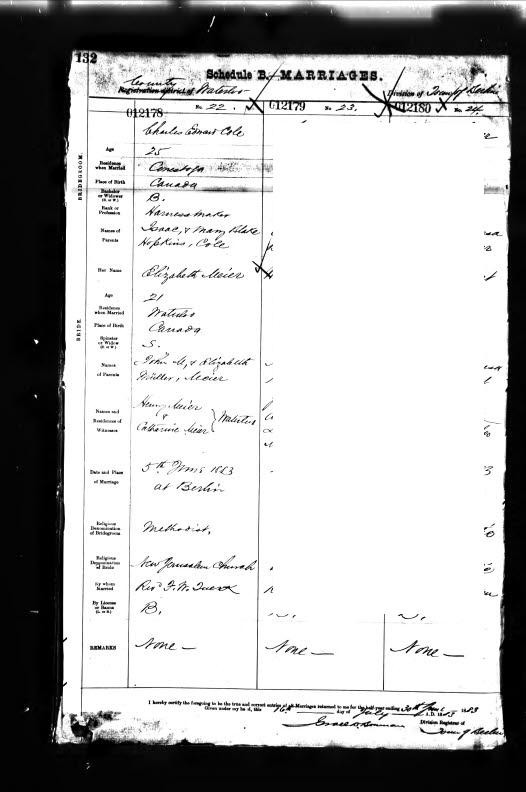 132
Schedule B. MARRIAGES.
County
Registration District of Waterloo
Division of Town of Berlin
No. 22. No. 23. No. 24.
012178 012179 012180
BRIDEGROOM.
Charles Edward Cole
Age 25
Residence when Married Conestogo
Place of Birth Canada
Bachelor or Widower (B. or W.) B.
Rank or Profession Harness maker
Names of Parents Isaac, & Mary Blake
Hopkins, Cole
BRIDE.
Her Name Elizabeth Meier
Age 21
Residence when Married Waterloo
Place of Birth Canada
Spinster or Widow (S. or W.) S.
Names of Parents John M, & Elizabeth
Müller, Meier
Names and Residences of Witnesses Henry Meier
& Waterloo
Catharine Meier
Date and Place of Marriage 5th June 1883
at Berlin
Religious Denomination of Bridegroom Methodist,
Religious Denomination of Bride New Jerusalem Church
By whom Married Revd F. W. Tuerk
By License or Banns (L. or B.) B.
REMARKS None — None — None —
I hereby certify the foregoing to be the true and correct entries of all Marriages returned to me for the half year ending 30th June 1883
Given under my hand, this 16th day of July A.D. 1883
Division Registrar of
Town of Berlin